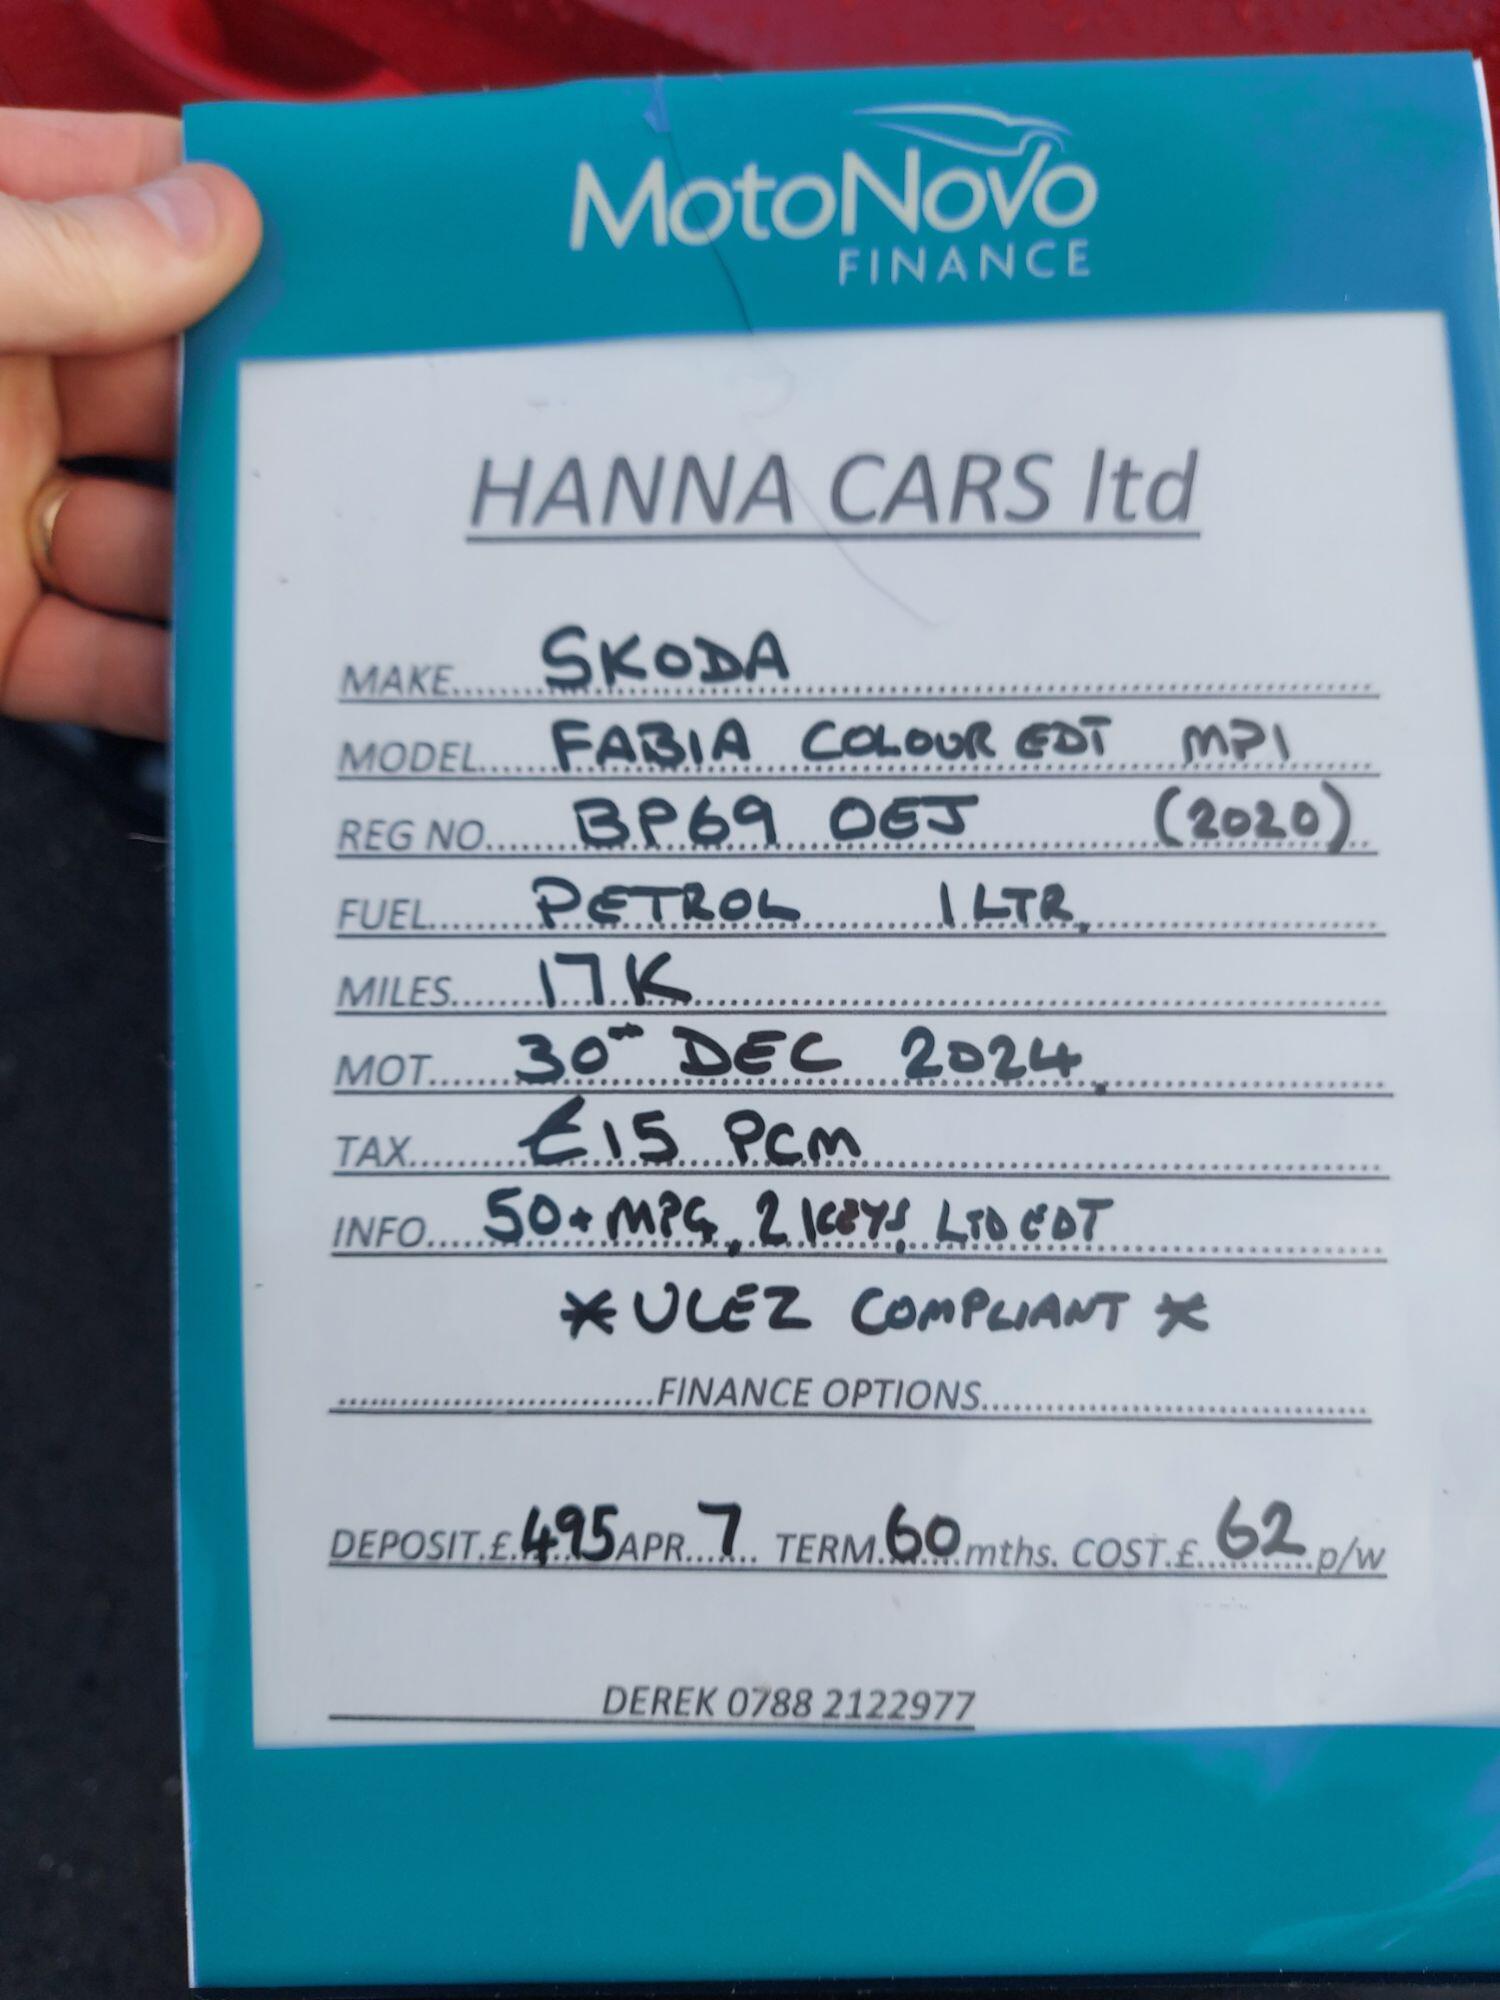 MotoNovo
FINANCE
HANNA CARS ltd
MAKE SKODA
MODEL FABIA COLOUR EDT MPI
REG NO BP69 OEJ (2020)
FUEL PETROL 1 LTR.
MILES 17K
MOT 30TH DEC 2024.
TAX £15 PCM
INFO 50+ MPG, 2 KEYS, LTD EDT
* ULEZ COMPLIANT *
FINANCE OPTIONS
DEPOSIT.£.495 APR 7 TERM.60 mths. COST.£ 62 p/w
DEREK 0788 2122977